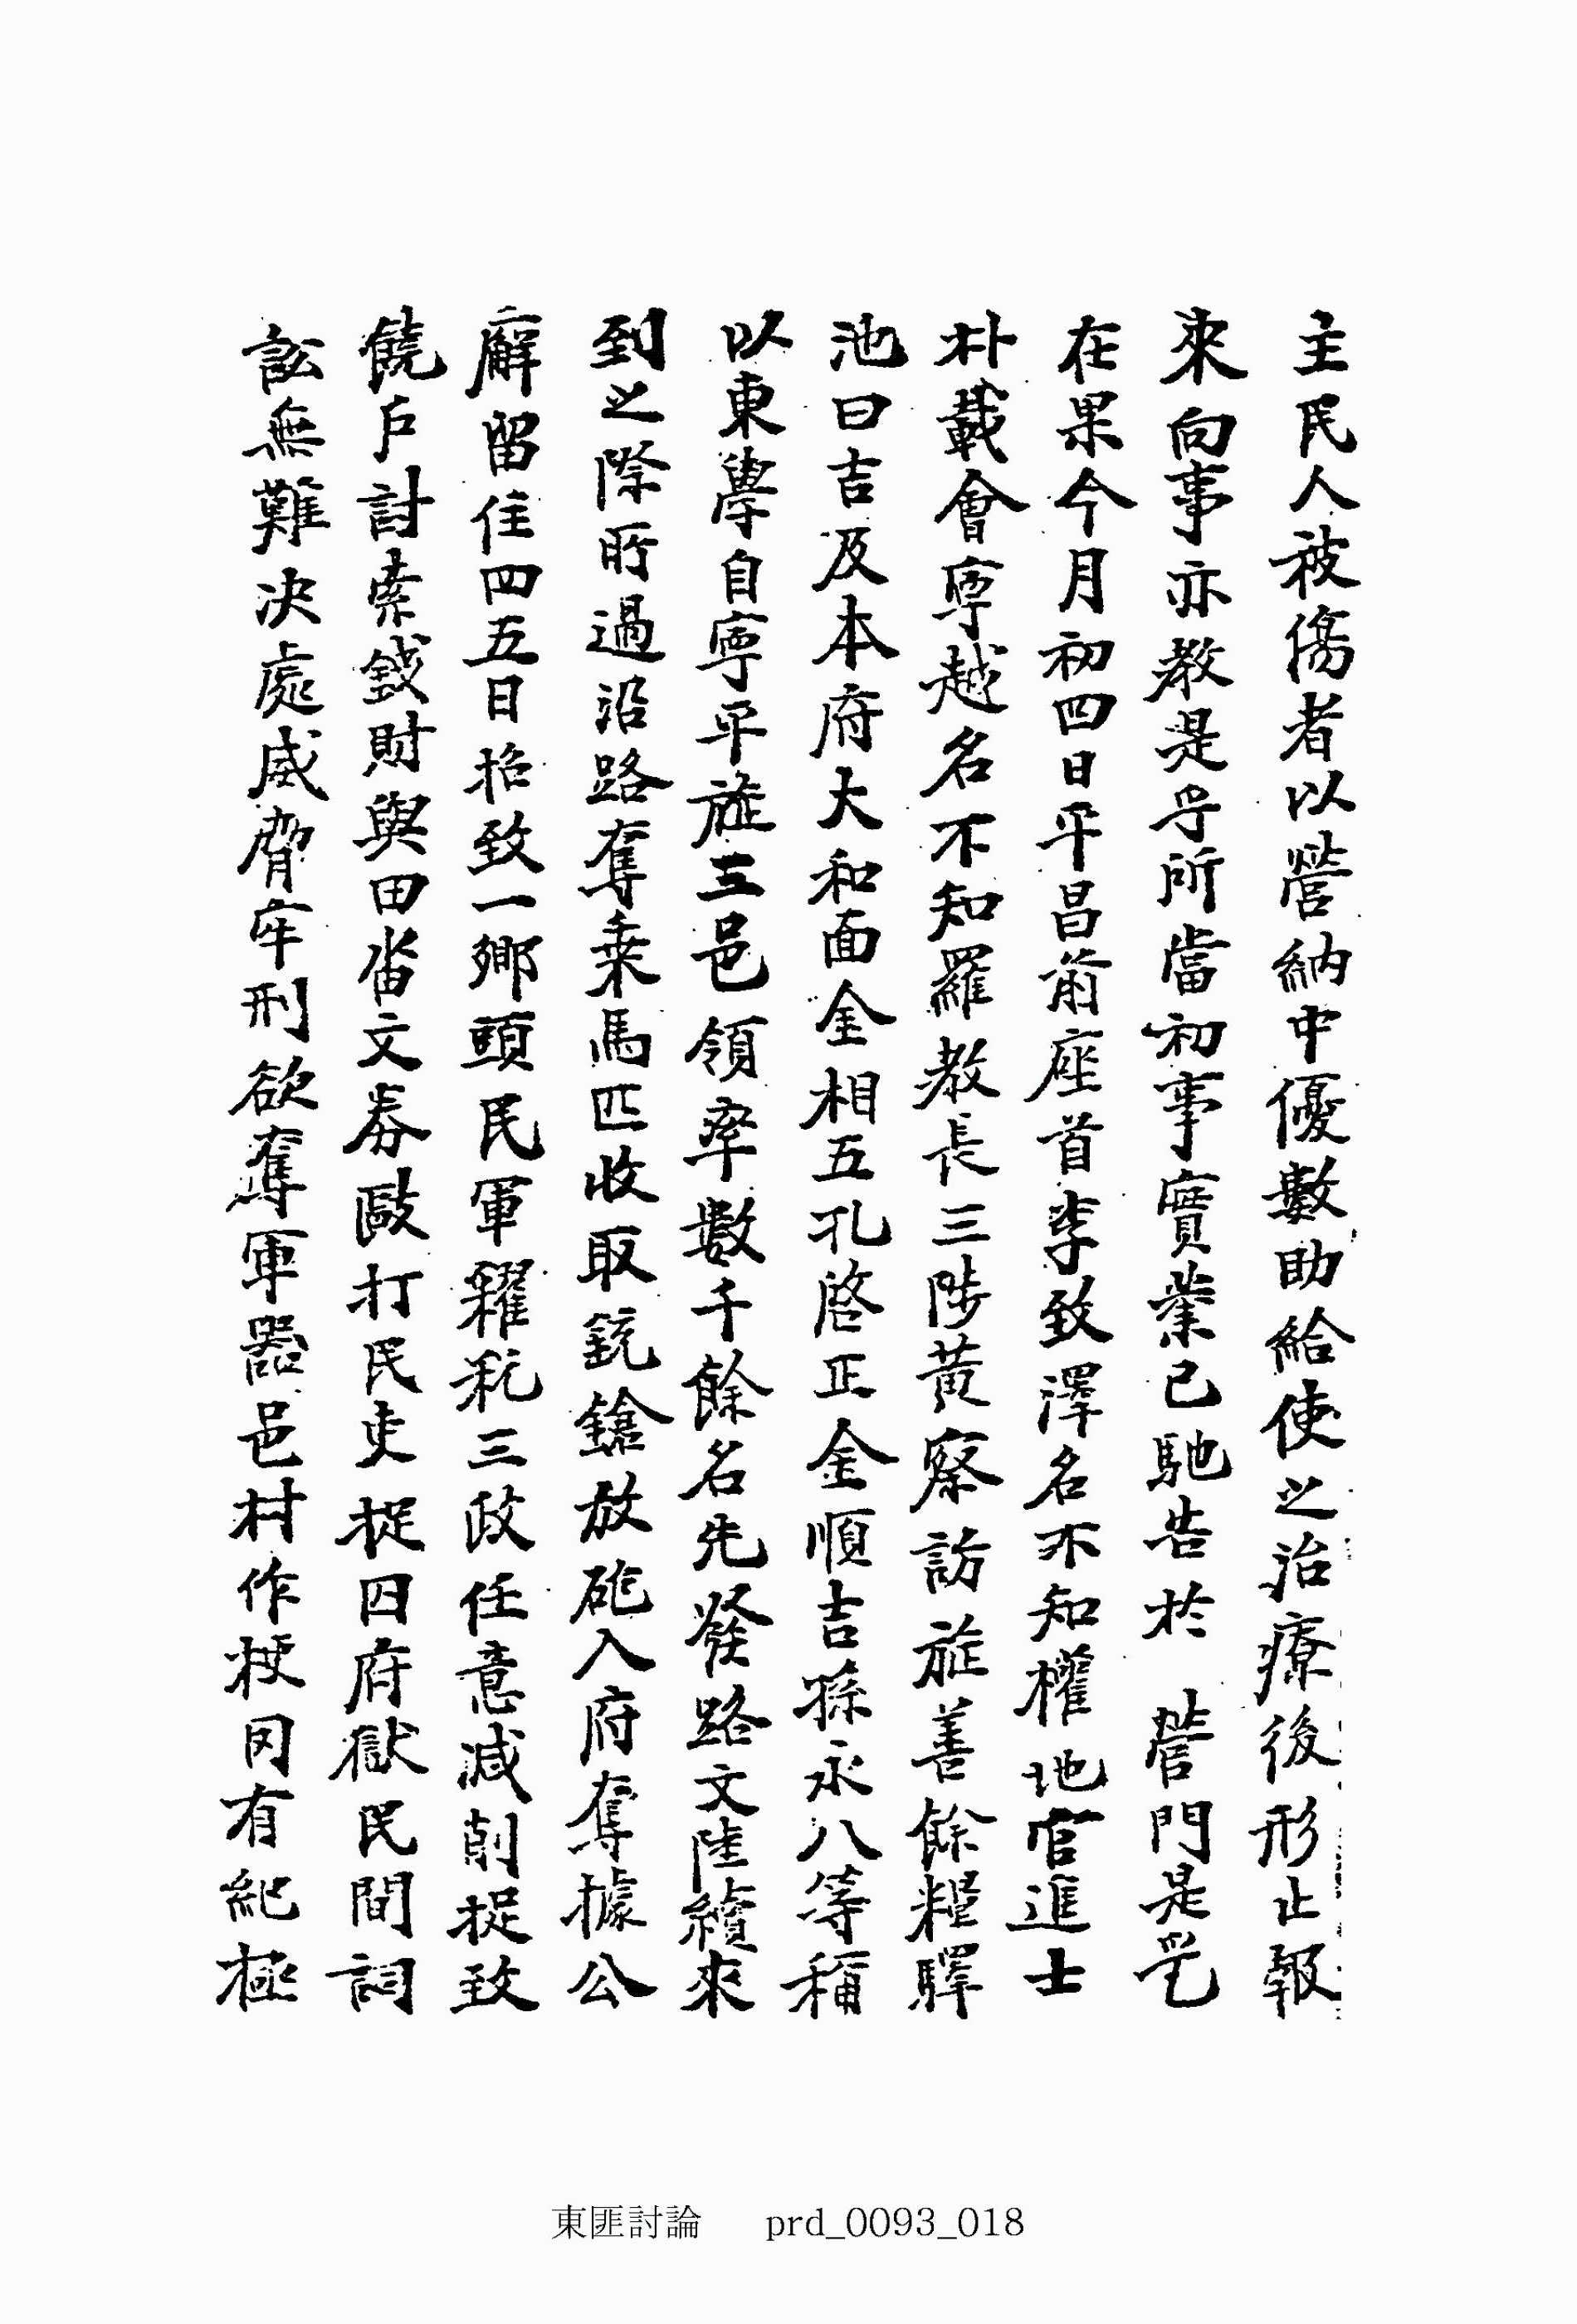 主民人被傷者以營納中優數助給使之治療後形止報
來向事亦敎是乎所當初事實業已馳告於 營門是乯
在果今月初四日平昌前座首李致澤名不知權地官進士
朴載會寧越名不知羅敎長三陟黃察訪旌善餘粮驛
池曰吉及本府大和面金相五孔啓正金順吉孫永八等稱
以東學自寧平旌三邑領率數千餘名先發路文陸續來
到之際所過沿路奪乘馬匹收取銃鎗放砲入府奪據公
廨留住四五日招致一鄕頭民軍糶秕三政任意减削捉致
饒戶討索錢財與田畓文劵敺打民吏捉囚府獄民間詞
訟無難决處威脅牢刑欲奪軍器邑村作梗罔有紀極
東匪討論 prd_0093_018